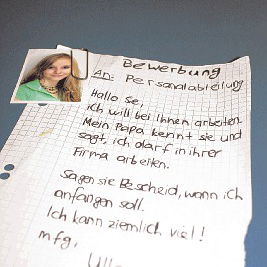 Bewerbung
An: Personalabteilung
Hallo Se,
ich will bei Ihnen arbeiten.
Mein Papa kennt sie und
sagt, ich darf in ihrer
Firma arbeiten.
Sagen sie Bescheid, wann ich
anfangen soll.
Ich kann ziemlich viel!
mfg,